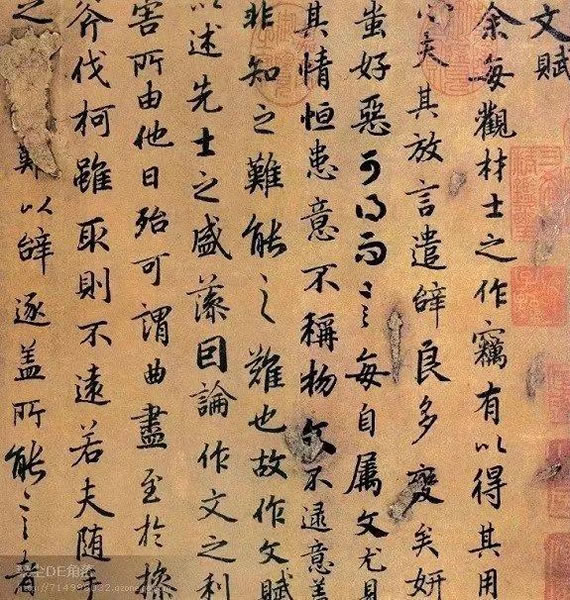 文賦
余每觀材士之作竊有以得其用
心夫其放言遣辭良多變矣妍
蚩好惡可得而言之每自屬文尤見
其情恒患意不稱物文不逮意蓋
非知之難能之難也故作文賦
以述先士之盛藻因論作文之利
害所由他日殆可謂曲盡至於操
斧伐柯雖取則不遠若夫隨手
之難以辭逐蓋所能言者